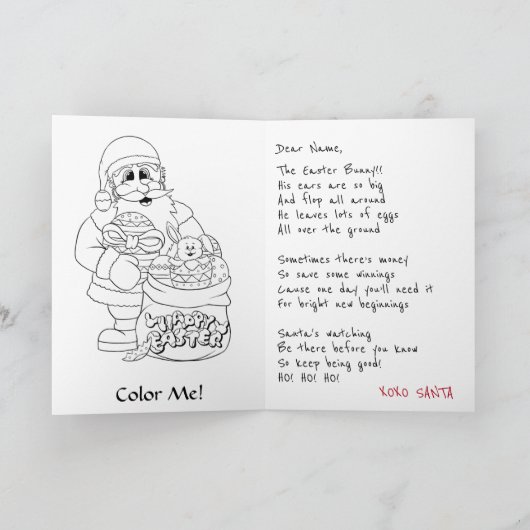 HAPPY
EASTER
Color Me!
Dear Name,
The Easter Bunny!!
His ears are so big
And flop all around
He leaves lots of eggs
All over the ground
Sometimes there's money
So save some winnings
Cause one day you'll need it
For bright new beginnings
Santa's watching
Be there before you know
So keep being good!
HO! HO! HO!
XOXO SANTA